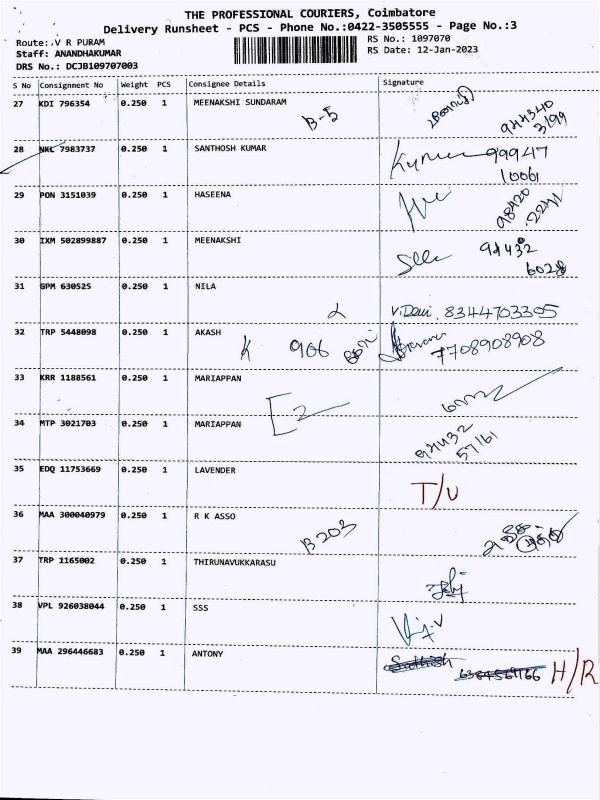 THE PROFESSIONAL COURIERS, Coimbatore
Delivery Runsheet - PCS - Phone No.:0422-3505555 - Page No.:3
Route: V R PURAM
RS No.: 1097070
Staff: ANANDHAKUMAR
RS Date: 12-Jan-2023
DRS No.: DCJB109707003
S No Consignment No Weight PCS Consignee Details Signature
27 KDI 796354 0.250 1 MEENAKSHI SUNDARAM
B-5
944340
3199
28 NKL 7983737 0.250 1 SANTHOSH KUMAR
99947
10061
29 PON 3151039 0.250 1 HASEENA
98420
22241
30 IXM 502899887 0.250 1 MEENAKSHI
94432
6028
31 GPM 630525 0.250 1 NILA
V.Devi 8344703305
32 TRP 5448098 0.250 1 AKASH
K 906
7708908908
33 KRR 1188561 0.250 1 MARIAPPAN
E2
34 MTP 3021703 0.250 1 MARIAPPAN
94432
57161
35 EDQ 11753669 0.250 1 LAVENDER
T/U
36 MAA 300040979 0.250 1 R K ASSO
B 203
37 TRP 1165002 0.250 1 THIRUNAVUKKARASU
38 VPL 926038044 0.250 1 SSS
39 MAA 296446683 0.250 1 ANTONY
Sathish
H/R